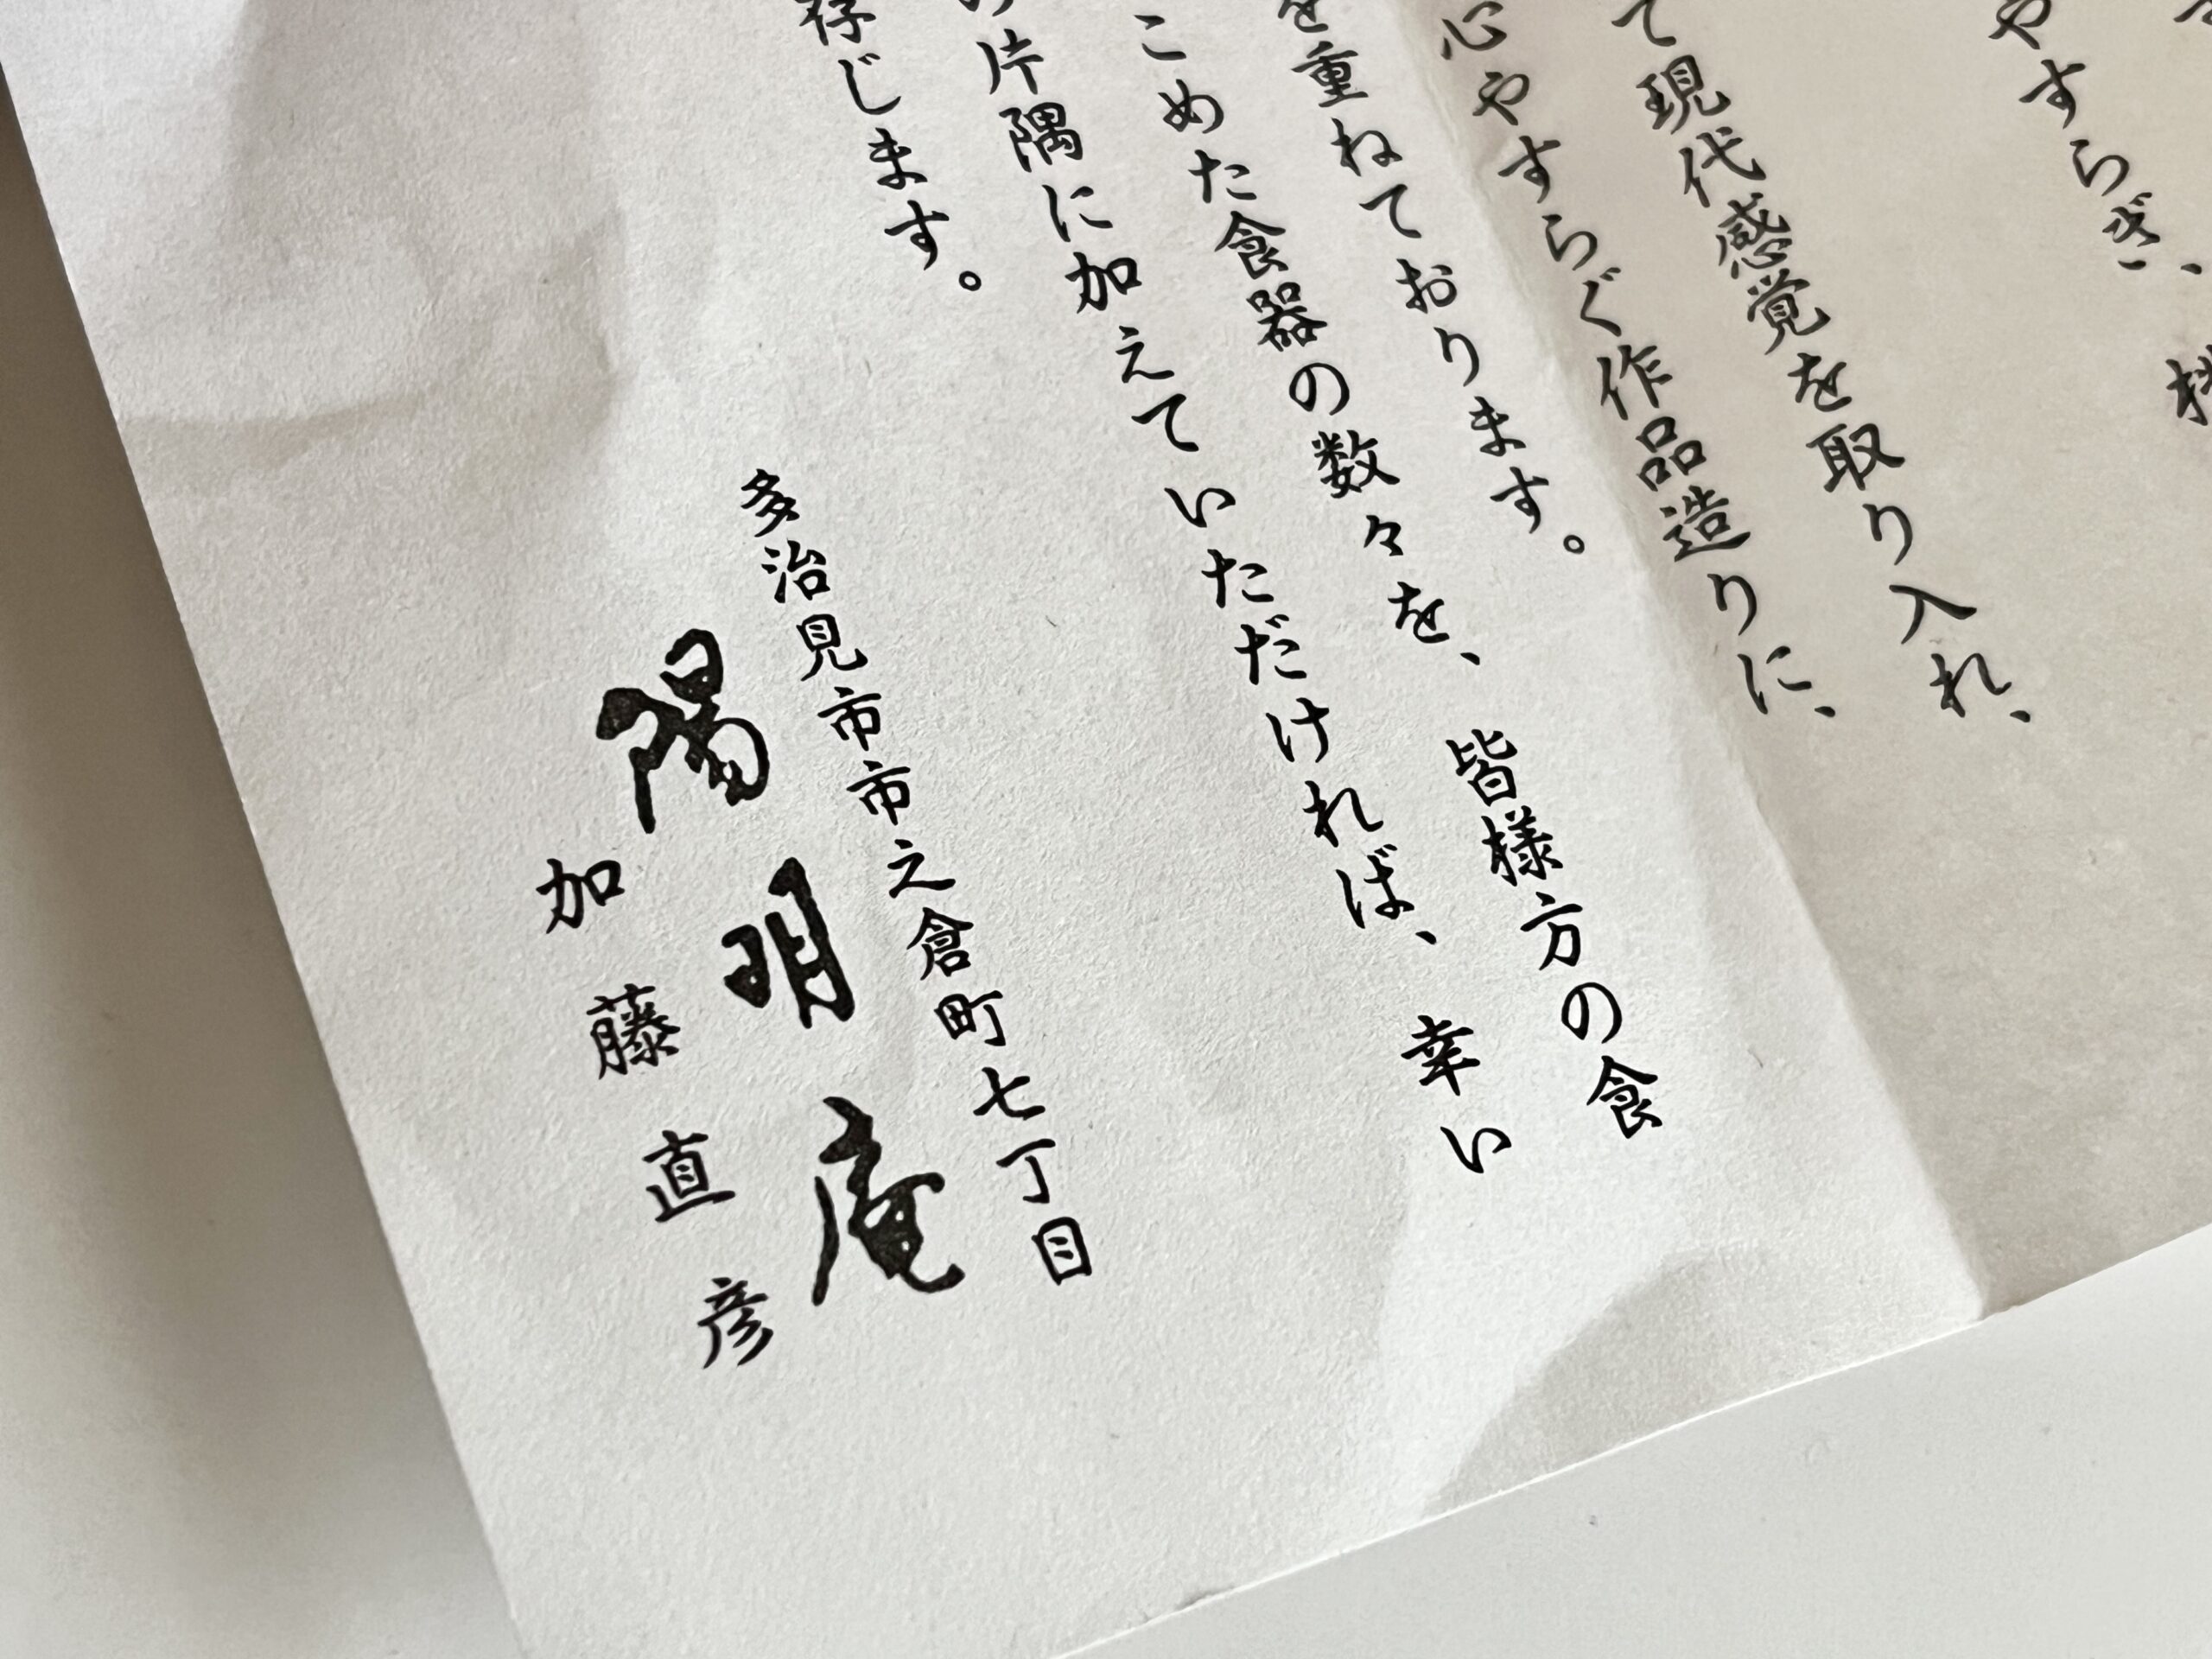 やすらぎ、
て現代感覚を取り入れ、
心やすらぐ作品造りに、
を重ねております。
こめた食器の数々を、皆様方の食
の片隅に加えていただければ、幸い
存じます。
多治見市市之倉町七丁目
陽明庵
加藤直彦